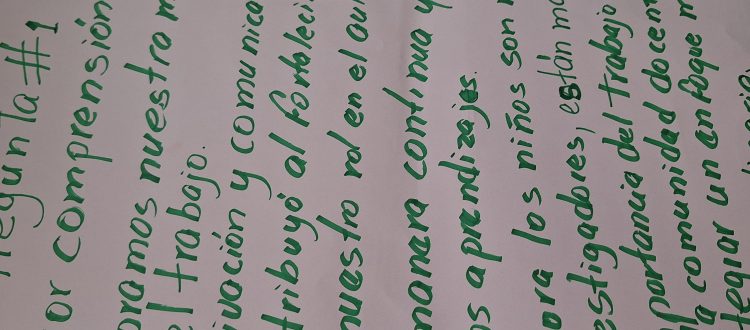 regunta #1
or comprensión
oramos nuestra m
el trabajo.
ivación y comunica
tribuyó al fortaleci
nuestro rol en el aul
manera continua y
os aprendizajes.
ora los niños son
estigadores, están mo
portancia del trabajo
a comunidad docen
legiar un enfoque m